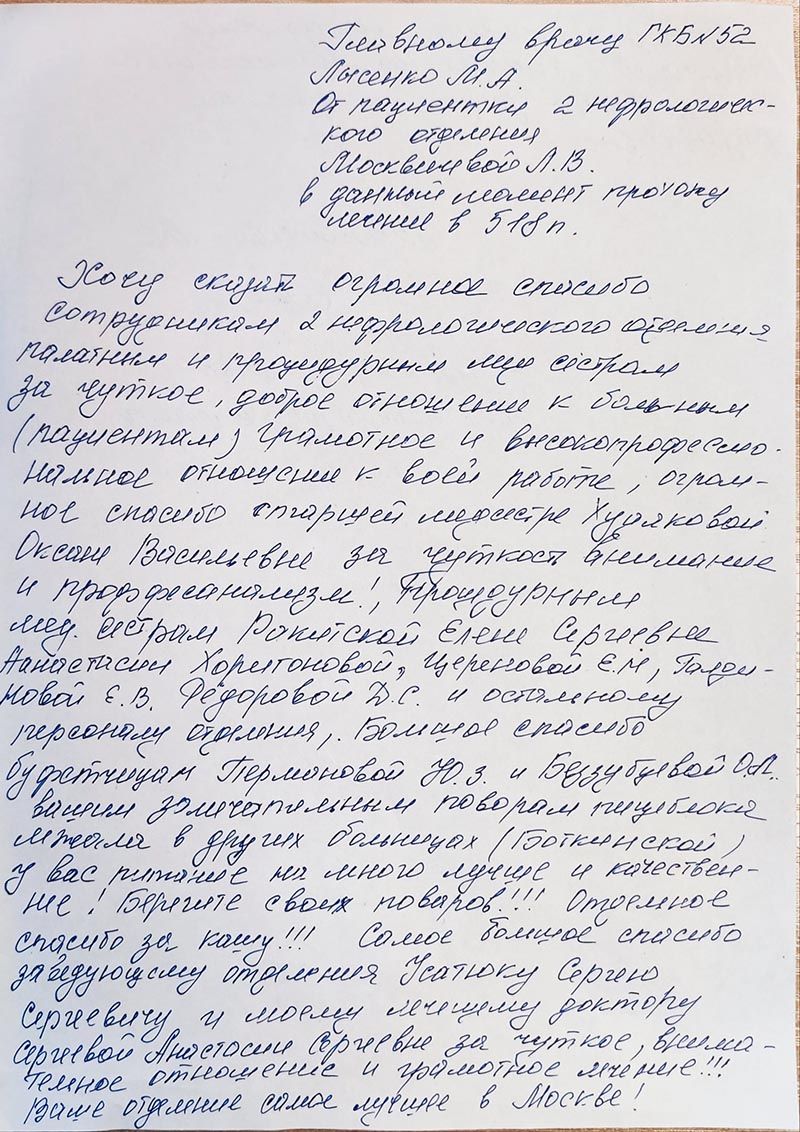 Главному врачу ГКБ№52
Лысенко М.А.
От пациентки 2 нефрологичес-
кого отделения
Москвичевой Л.В.
в данный момент прохожу
лечение в 518 п.
Хочу сказать огромное спасибо
сотрудникам 2 нефрологического отделения
палатным и процедурным мед сёстрам
за чуткое, доброе отношение к больным
(пациентам) грамотное и высокопрофессио-
нальное отношение к воей работе, огром-
ное спасибо старшей медсестре Худяковой
Оксане Васильевне за чуткость внимание
и профессанализм!, Процедурным
мед. сёстрам Ракитской Елене Сергиевне
Анастасии Харитоновой, Цереновой Е.Н,
новой Е.В. Фёдоровой Д.С. и остальному
персоналу отделения,. Большое спасибо
буфетчицам Пермановой Ю.З. и Беззубцевой О.Л.
вашим замечательным поварам пищеблока
лежала в других больницах (Боткинской)
у вас питание на много лучше и качествен-
ние! Берегите своих поваров!!! Отдельное
спасибо за кашу!!! Самое большое спасибо
заведующему отделения Усатюку Сергею
Сергиевичу и моему лечещему доктору
Сергиевой Анастасии Сергиевне за чуткое, внима-
тельное отношение и грамотное лечение!!!
Ваше отделение самое лучшее в Москве!